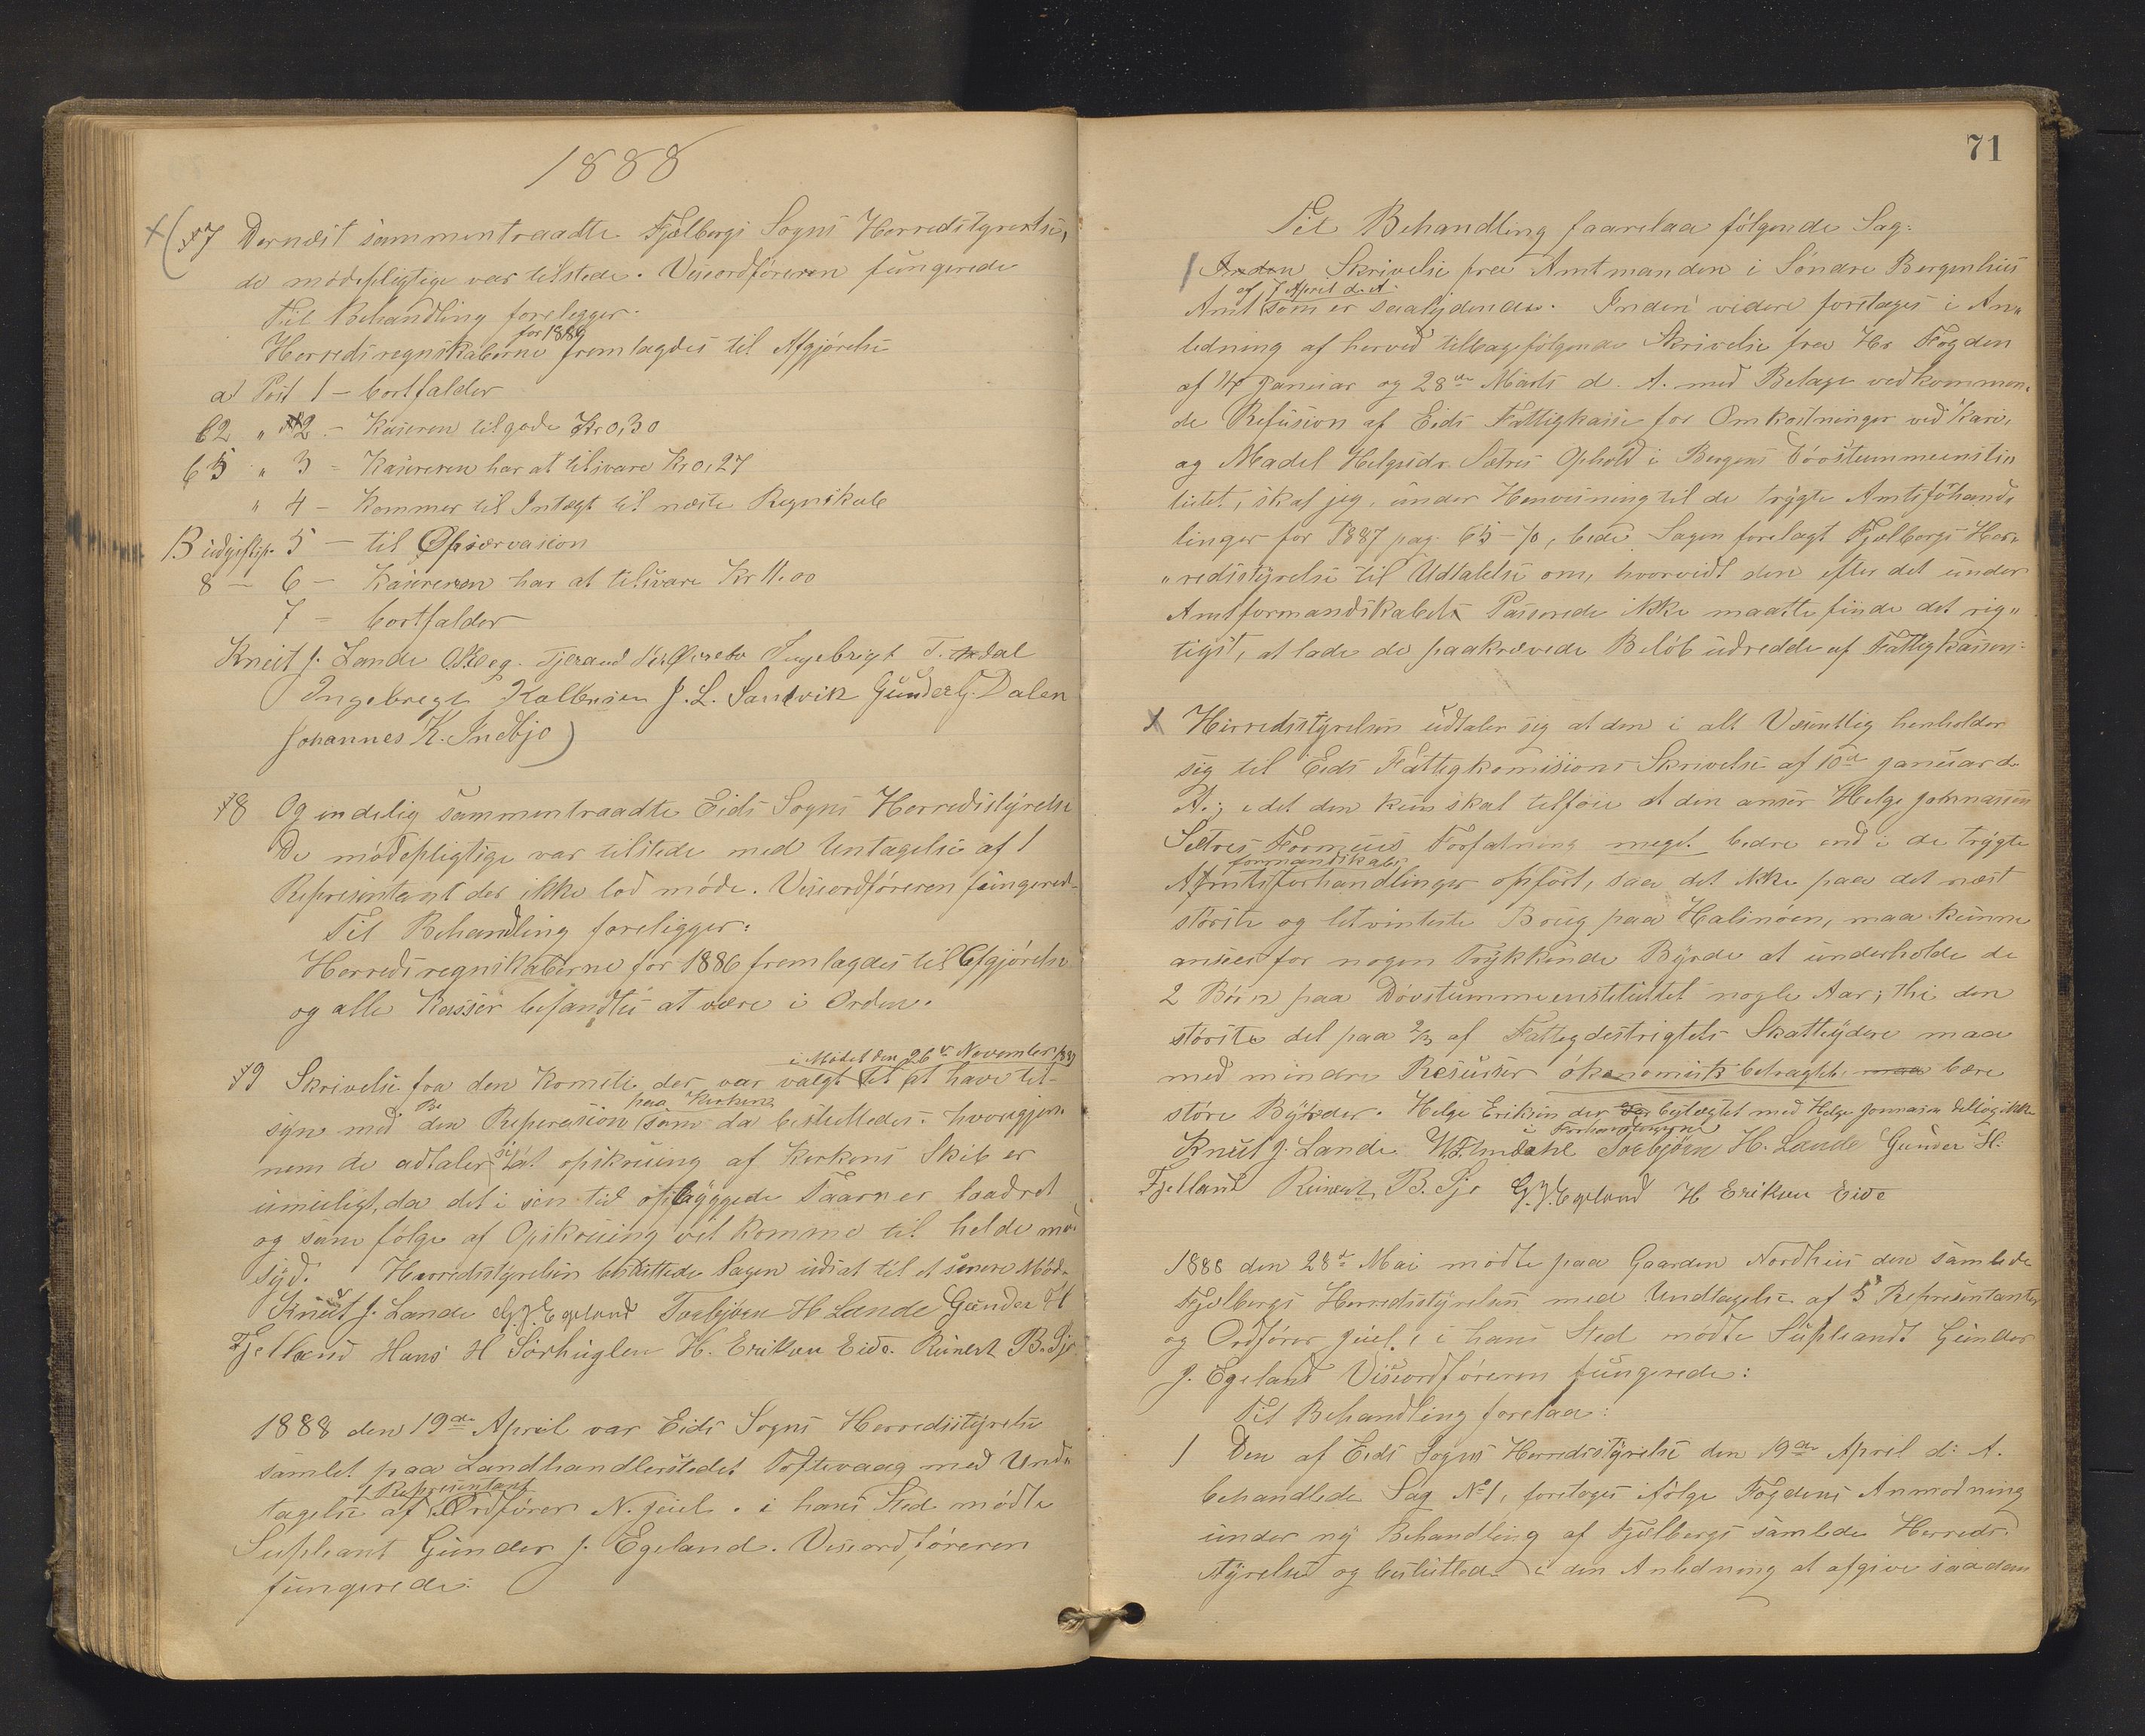 1888
§7 Dernæst sammentraadte Fjelbergs Sogns Herredstyrelse,
de mødepligtige var tilstede. Viseordføreren fungerede
Til Behandling forelegger.
Herredsregnskaberne for 1886 fremlagdes til Afgjørelse
a Post 1 – bortfalder
62 " 2 – Kasseren tilgode Kr 0,30
65 " 3 – Kassereren har at tilsvare Kr 0,27
" 4 – Kommer til Intægt til næste Regnskab
B udgiftsp. 5 – til Observasion
8 – 6 – Kassereren har at tilsvare Kr 11.00
7 – bortfalder
Knut J. Lande Tjerand Ingebrigt T.
Ingebregt J. L. Sandvik Gunder G. Dalen
Johannes K. Indbjo)
§8 Og endelig sammentraadte Eids Sogns Herredsstyrelse
De mødepligtige var tilstede med Untagelse af 1
Representant der ikke lod møde. Viseordføreren fungered.
Til Behandling foreligger:
Herredsregnskaberne for 1886 fremlagdes til Afgjørelse
og alle Kasser befandtes at være i Orden.
i Mødet den 26de November 1887
§9 Skrivelse fra den Komite der var valgt til at have til-
syn med den Reperasion paa Kirken som da besluttedes. hvorigjen-
nem de udtaler sig at opskruing af Kirkens Skib er
umuligt, da det i sin tid opbyggede Taarn er
og som følge af Opskruing vil komme til helde mod
Syd. Herredsstyrelsen besluttede Sagen udsat til et senere Møde.
Knut J. Lande G. J. Egeland Torbjørn H Lande Gunder H
Fjelland Hans H Sørhuglen H. Eriksen Eide. Reinert B. Sjo
1888 den 19de April var Eids Sogns Herredsstyrelse
samlet paa Landhandlerstedet Toftevaag med Und-
tagelse af 1 Representant Ordfører N. Juel. i hans Sted mødte
Supleant Gunder J. Egeland. Viseordføreren
fungerede:
71
Til Behandling faarelaa følgende Sag:
1 Skrivelse fra Amtmanden i Søndre Bergenhus
Amt af 7 April d. A. som er saalydende: Inden videre foretages i An-
ledning af herved tilbagefølgende Skrivelse fra Hr. Fogden
af 14 Januar og 28de Marts d. A. med Belage vedkommen-
de Refusion af Eids Fattigkasse for Omkostninger ved Kari,
og Madel Helgesdr. Sætres Ophold i Bergens Døvstummeinsti-
tutet, skal jeg, under Henvisning til de trygte Amtsfohand-
linger for 1887 pag. 65–70, bede Sagen forelagt Fjelbergs Her-
redsstyrelse til Udtalelse om, hvorvidt den efter det under
Amtformandskabets Passerede ikke maatte finde det rig-
tigst, at lade de paakrævede Beløb udredde af Fattigkassen.
Herredsstyrelsen udtaler sig at den i alt Væsentlig henholder
sig til Eids Fattigkomisions Skrivelse af 10de Januar d.
A.; idet den kun skal tilføie at den anser Helge Johnassen
Sætres Formues Forfatning meget bedre end i de trygte
Amtsformandskabsforhandlinger opført, saa det ikke paa det næst
største og letvinteste Brug paa Halsnøen, maa kunne
ansees for nogen Trykkende Byrde at underholde de
2 Børn paa Døvstummeinstituttet nogle Aar; thi den
største del paa 2/3 af Fattigdestrigtets Skatteydere maa
med mindre Resurser økonomisk betragtet bære
støre Byrder. Helge Eriksen der er beslægtet med Helge Jonnassen deltog ikke
i Forhandlingerne
Knut J. Lande Torbjørn H. Lande Gunder H.
Fjelland Reinert B. Sjo G. J. Egeland H Eriksen Eide
1888 den 28de Mai mødte paa Gaarden Nordhus den samlede
Fjelbergs Herredsstyrelsen med Undtagelse af 5 Representanter
og Ordfører Juel, i hans Sted mødte Supleandt Gunder
J. Egeland Viseordføreren fungerede:
Til Behandling forelaa:
1 Den af Eids Sogns Herredsstyrelse den 19de April d: A.
behandlede Sag No 1, foretages ifølge Fogdens Anmodning
under ny Behandling af Fjelbergs samlede Herreds-
styrelse og besluttede i den Anledning at afgive saadan